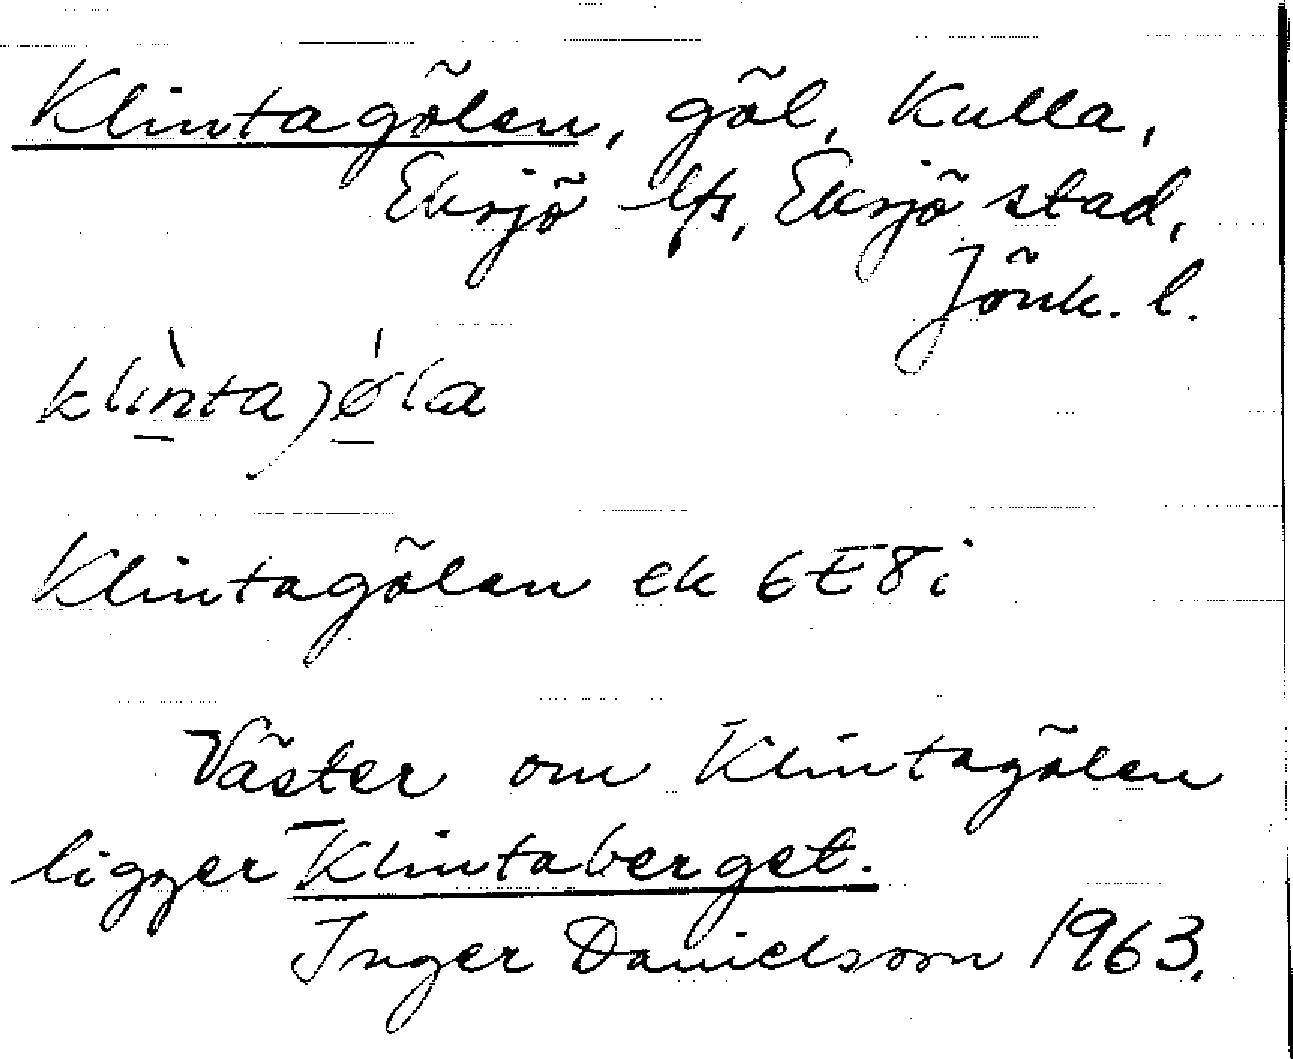 Klintagölen, göl, Kulla,
Eksjö lfs, Eksjö stad,
Jönk. l.
klìntajǿla
Klintagölen ek 6E8i
Väster om Klintagölen
ligger Klintaberget.
Inger Danielsson 1963.